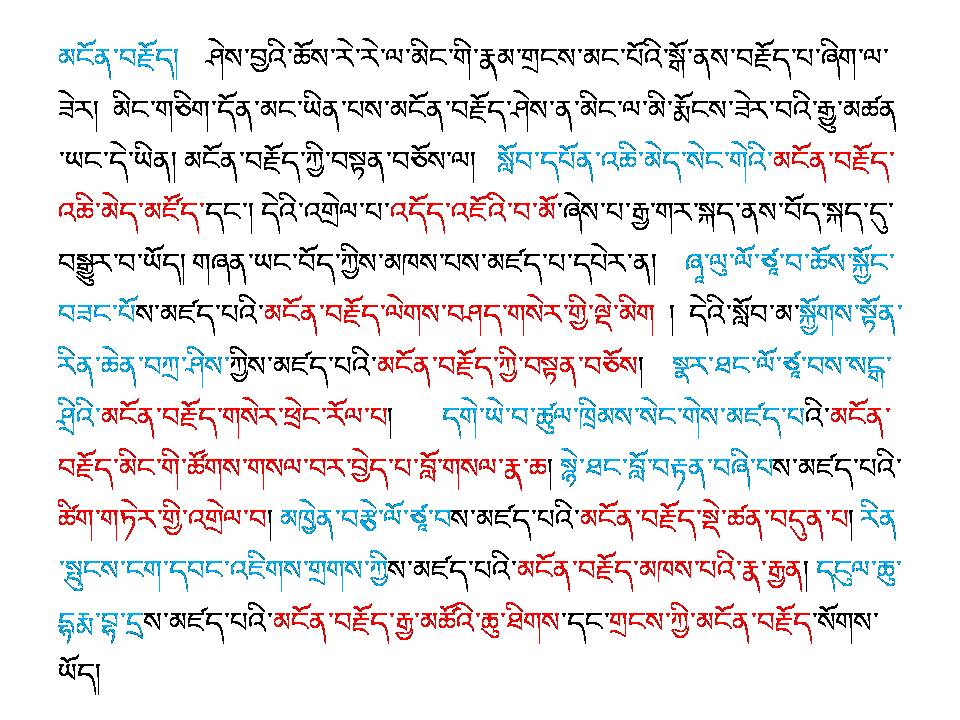 མངོན་བརྗོད། ཤེས་བྱའི་ཆོས་རེ་རེ་ལ་མིང་གི་རྣམ་གྲངས་མང་པོའི་སྒོ་ནས་བརྗོད་པ་ཞིག་ལ་
ཟེར། མིང་གཅིག་དོན་མང་ཡིན་པས་མངོན་བརྗོད་ཤེས་ན་མིང་ལ་མི་རྨོངས་ཟེར་བའི་རྒྱུ་མཚན
་ཡང་དེ་ཡིན། མངོན་བརྗོད་ཀྱི་བསྟན་བཅོས་ལ། སློབ་དཔོན་འཆི་མེད་སེང་གེའི་མངོན་བརྗོད་
འཆི་མེད་མཛོད་དང་། དེའི་འགྲེལ་པ་འདོད་འཇོའི་བ་མོ་ཞེས་པ་རྒྱ་གར་སྐད་ནས་བོད་སྐད་དུ་
བསྒྱུར་བ་ཡོད། གཞན་ཡང་བོད་ཀྱིས་མཁས་པས་མཛད་པ་དཔེར་ན། ཞྭ་ལུ་ལོ་ཙཱ་བ་ཆོས་སྐྱོང་
བཟང་པོས་མཛད་པའི་མངོན་བརྗོད་ལེགས་བཤད་གསེར་གྱི་ལྡེ་མིག ། དེའི་སློབ་མ་སྐྱོགས་སྟོན་
རིན་ཆེན་བཀྲ་ཤིས་ཀྱིས་མཛད་པའི་མངོན་བརྗོད་ཀྱི་བསྟན་བཅོས། སྣར་ཐང་ལོ་ཙཱ་བས་སངྒ་
ཤྲིའི་མངོན་བརྗོད་གསེར་ཕྲེང་རོལ་པ། དགེ་ཡེ་བ་ཚུལ་ཁྲིམས་སེང་གེས་མཛད་པའི་མངོན་
བརྗོད་མིང་གི་ཚོགས་གསལ་བར་བྱེད་པ་བློ་གསལ་རྣ་ཆ། སྙེ་ཐང་བློ་བརྟན་བཞི་པས་མཛད་པའི་
ཚིག་གཏེར་གྱི་འགྲེལ་བ། མཁྱེན་བརྩེ་ལོ་ཙཱ་བས་མཛད་པའི་མངོན་བརྗོད་སྡེ་ཚན་བདུན་པ། རིན
་སྤུངས་ངག་དབང་འཇིགས་གྲགས་ཀྱིས་མཛད་པའི་མངོན་བརྗོད་མཁས་པའི་རྣ་རྒྱན། དངུལ་ཆུ་
དྷརྨ་བྷ་དྲས་མཛད་པའི་མངོན་བརྗོད་རྒྱ་མཚོའི་ཆུ་ཐིགས་དང་གྲངས་ཀྱི་མངོན་བརྗོད་སོགས་
ཡོད།